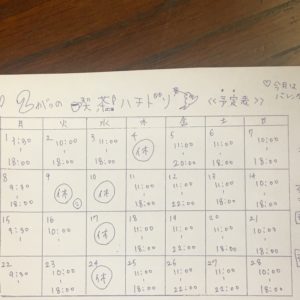 2がつの 喫茶 ハチドリ <<予定表>>
♡今月は
月 火 水 木 金 土 日
1 9:30 - 18:00
2 10:00 - 18:00
3 11:00 - 18:00
4 休
5 11:00 - 20:00
6 11:00 - 18:00
7 10:00 - 18:00
8 9:30 - 18:00
9 休
10 休
11 11:00 - 18:00
12 11:00 - 22:00
13 11:00 - 18:00
14
15 9:30 -
16 10:00 - 18:00
17 休
18 11:00 - 18:00
19 11:00 - 22:00
20 11:00 - 18:00
21 18:00
22 9:30 -
23 10:00 - 18:00
24 休
25 11:00 - 18:00
26 11:00 - 22:00
27 11:00 - 18:00
28 10:00 - 18:00